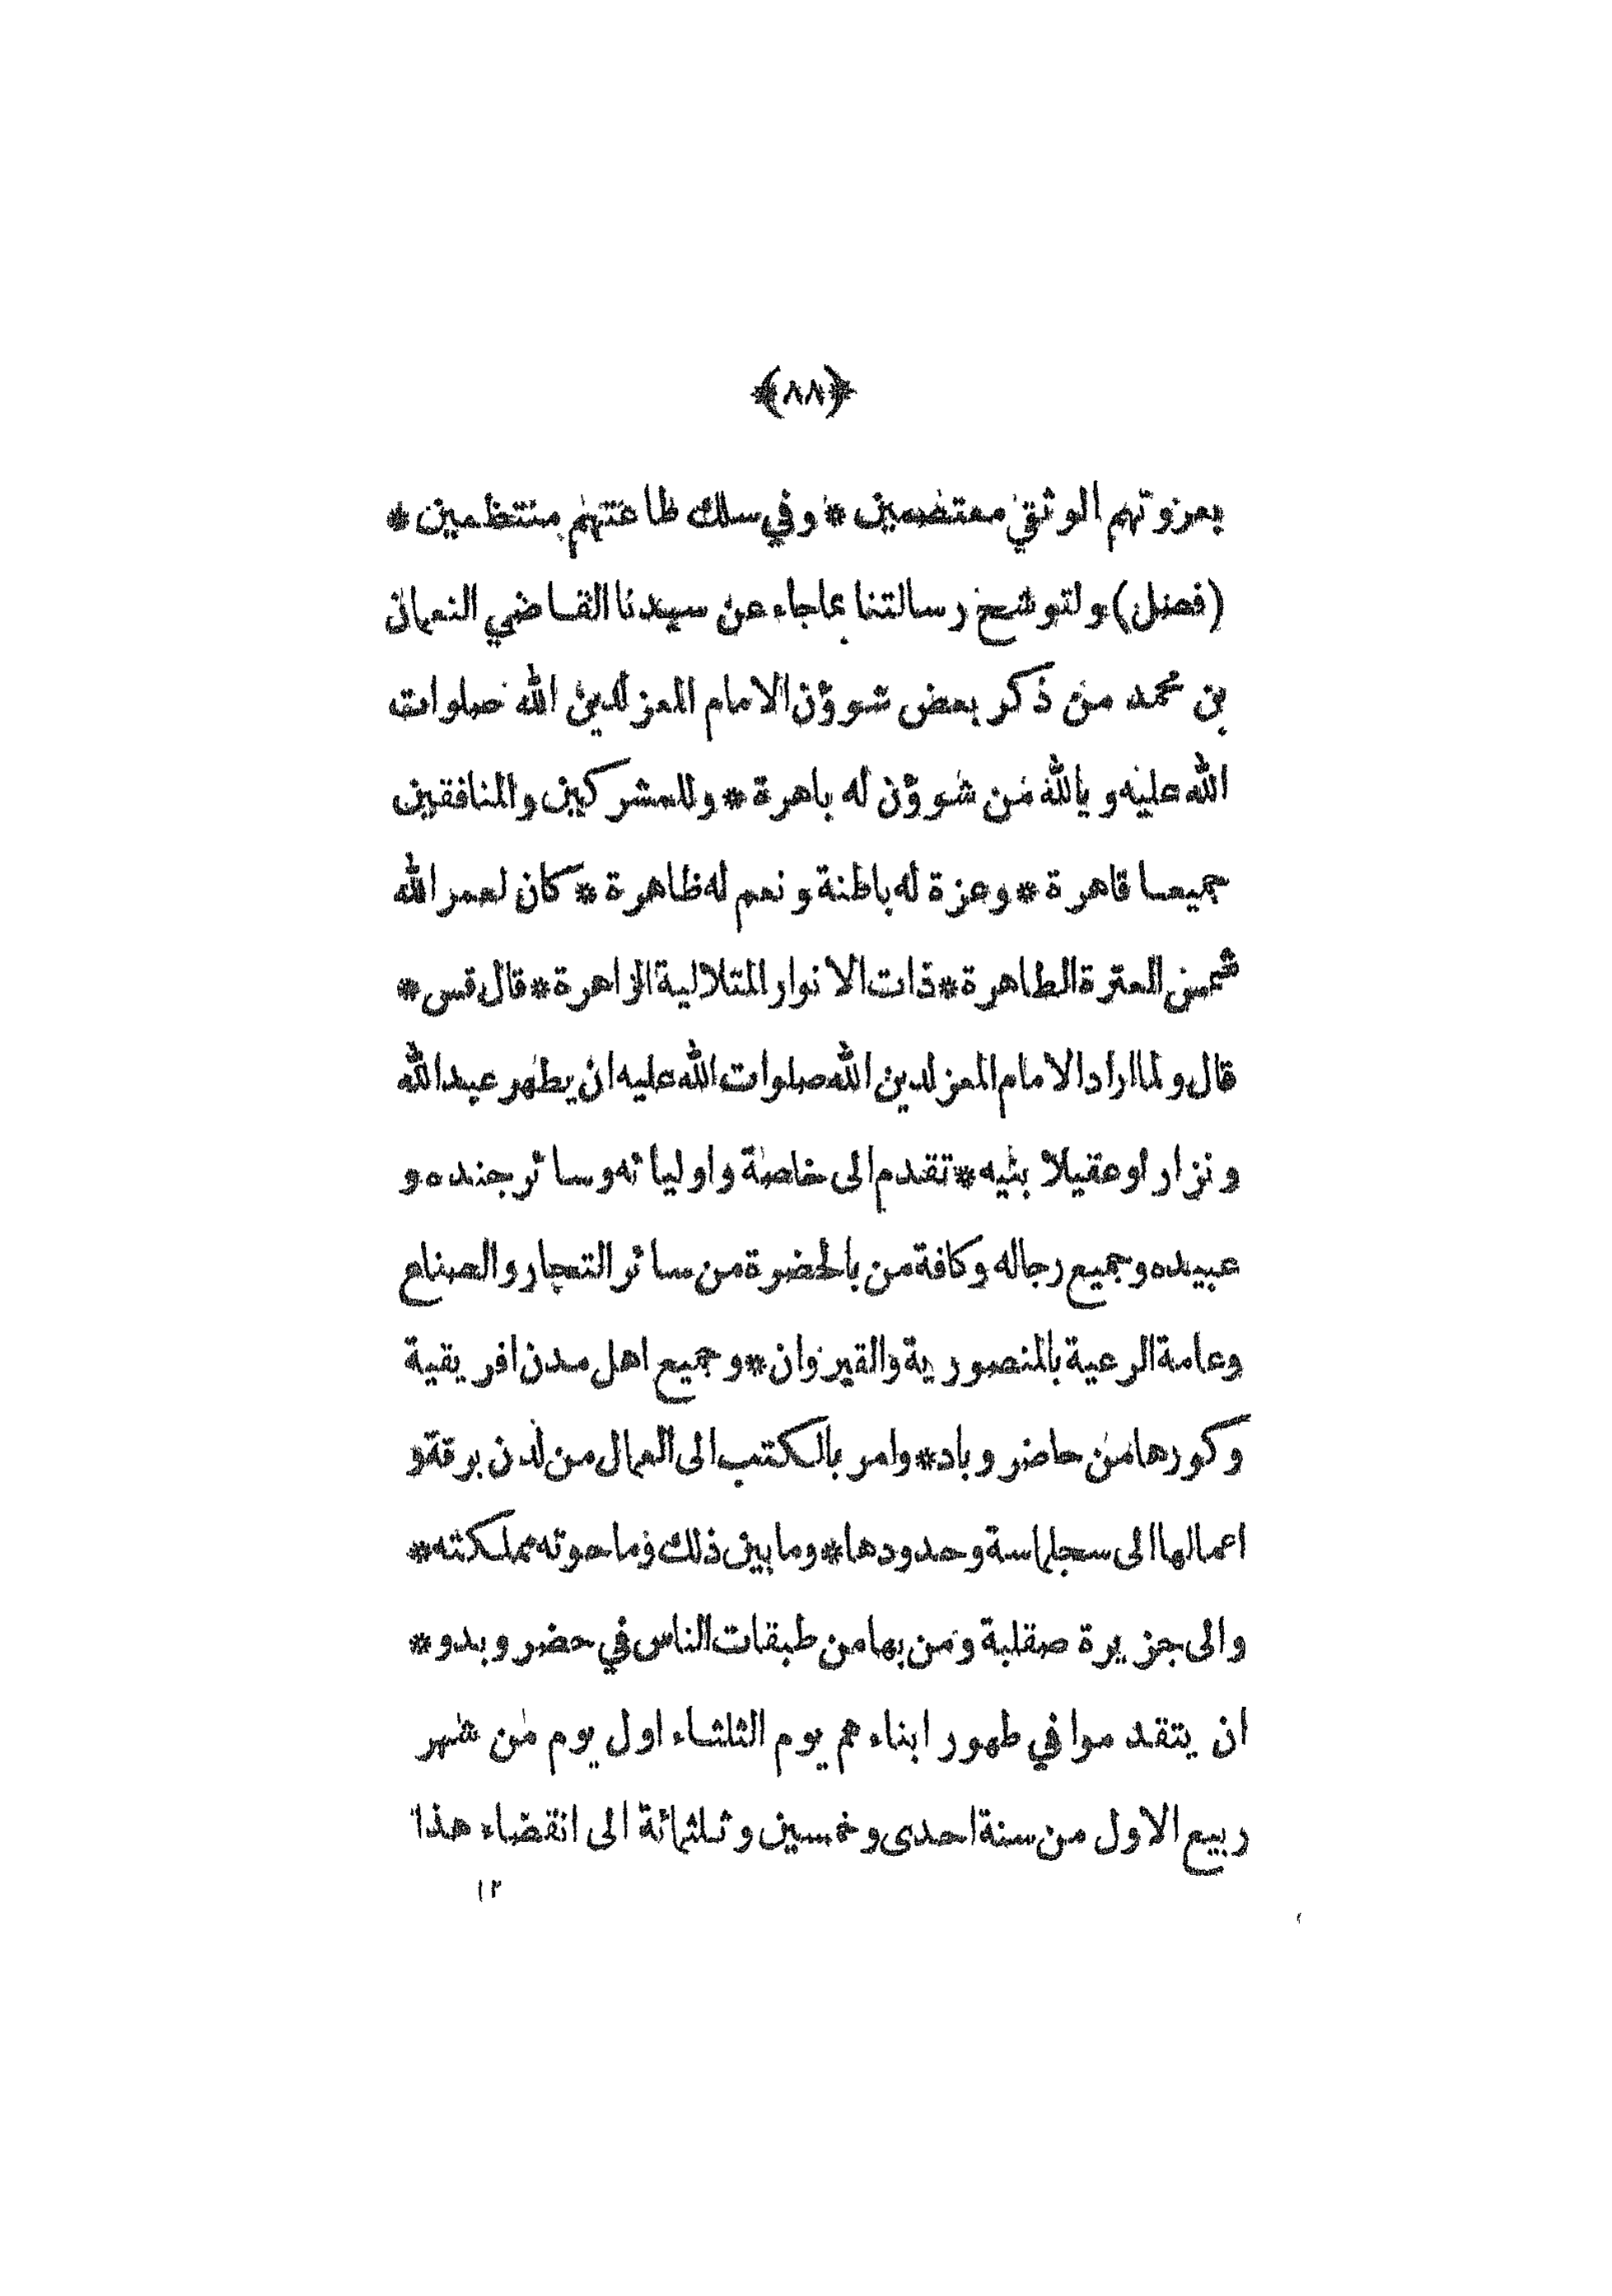 ﴿٨٨﴾
بعروتهم الوثقى معتصمين * وفي سلك طاعتهم منتظمين *
(فصل) ولتوشح رسالتنا بماجاء عن سيدنا القاضي النعمان
بن محمد من ذكر بعض شوؤن الامام المعز لدين الله صلوات
الله عليه و يالله من شوؤن له باهرة * وللمشركين والمنافقين
جميعا قاهرة * وعزة له باطنة و نعم له ظاهرة * كان لعمر الله
شمس العترة الطاهرة * ذات الانوار المتلالية الزاهرة * قال قس *
قال ولما اراد الامام المعز لدين الله صلوات الله عليه ان يطهر عبد الله
و نزار او عقيلا بنيه * تقدم الى خاصة واوليائه وسائر جنده و
عبيده وجميع رجاله وكافة من بالحضرة من سائر التجار والصناع
وعامة الرعية بالمنصورية والقيروان * وجميع اهل مدن افريقية
وكورها من حاضر وباد * وامر بالكتب الى العمال من لدن برقة و
اعمالها الى سجلماسة وحدودها * وما بين ذلك وما حوته مملكته *
والى جزيرة صقلبة ومن بها من طبقات الناس في حضر وبدو *
ان يتقدموا في طهور ابناءهم يوم الثلثاء اول يوم من شهر
ربيع الاول من سنة احدى وخمسين وثلثمائة الى انقضاء هذا
١٢